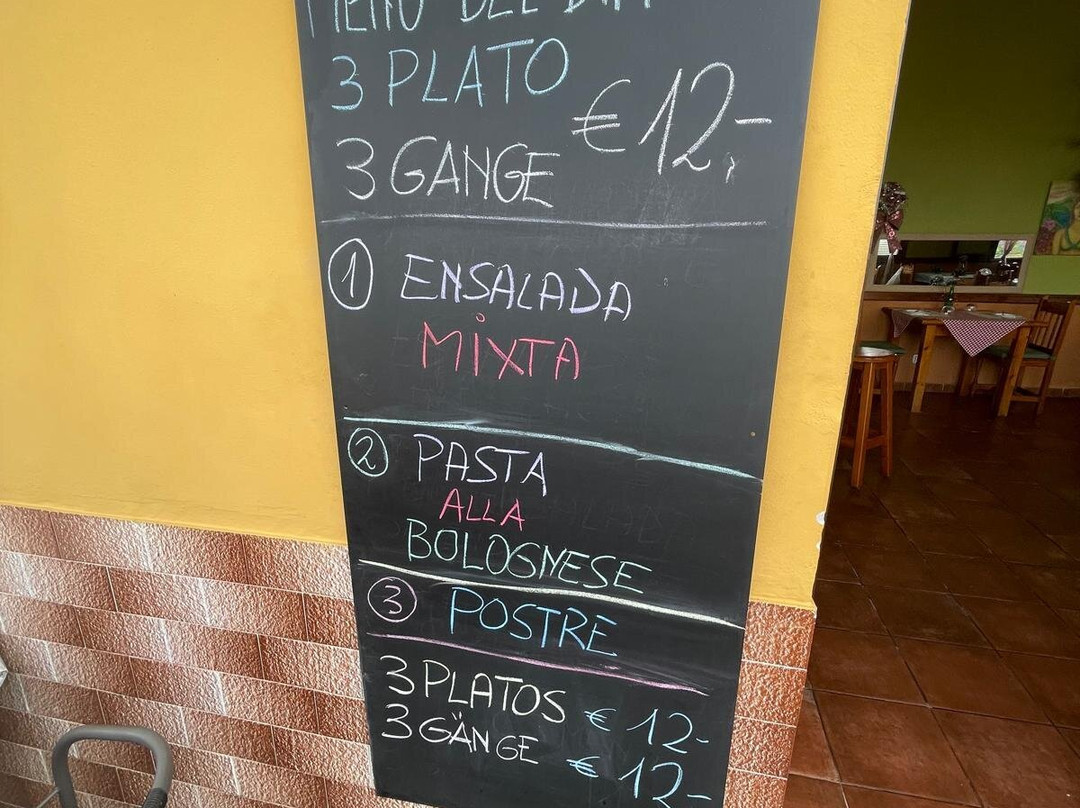 MENU DEL DIA
3 PLATO
€ 12,-
3 GANGE
1 ENSALADA
MIXTA
2 PASTA
ALLA
BOLOGNESE
3 POSTRE
3 PLATOS € 12-
3 GÄNGE € 12,-